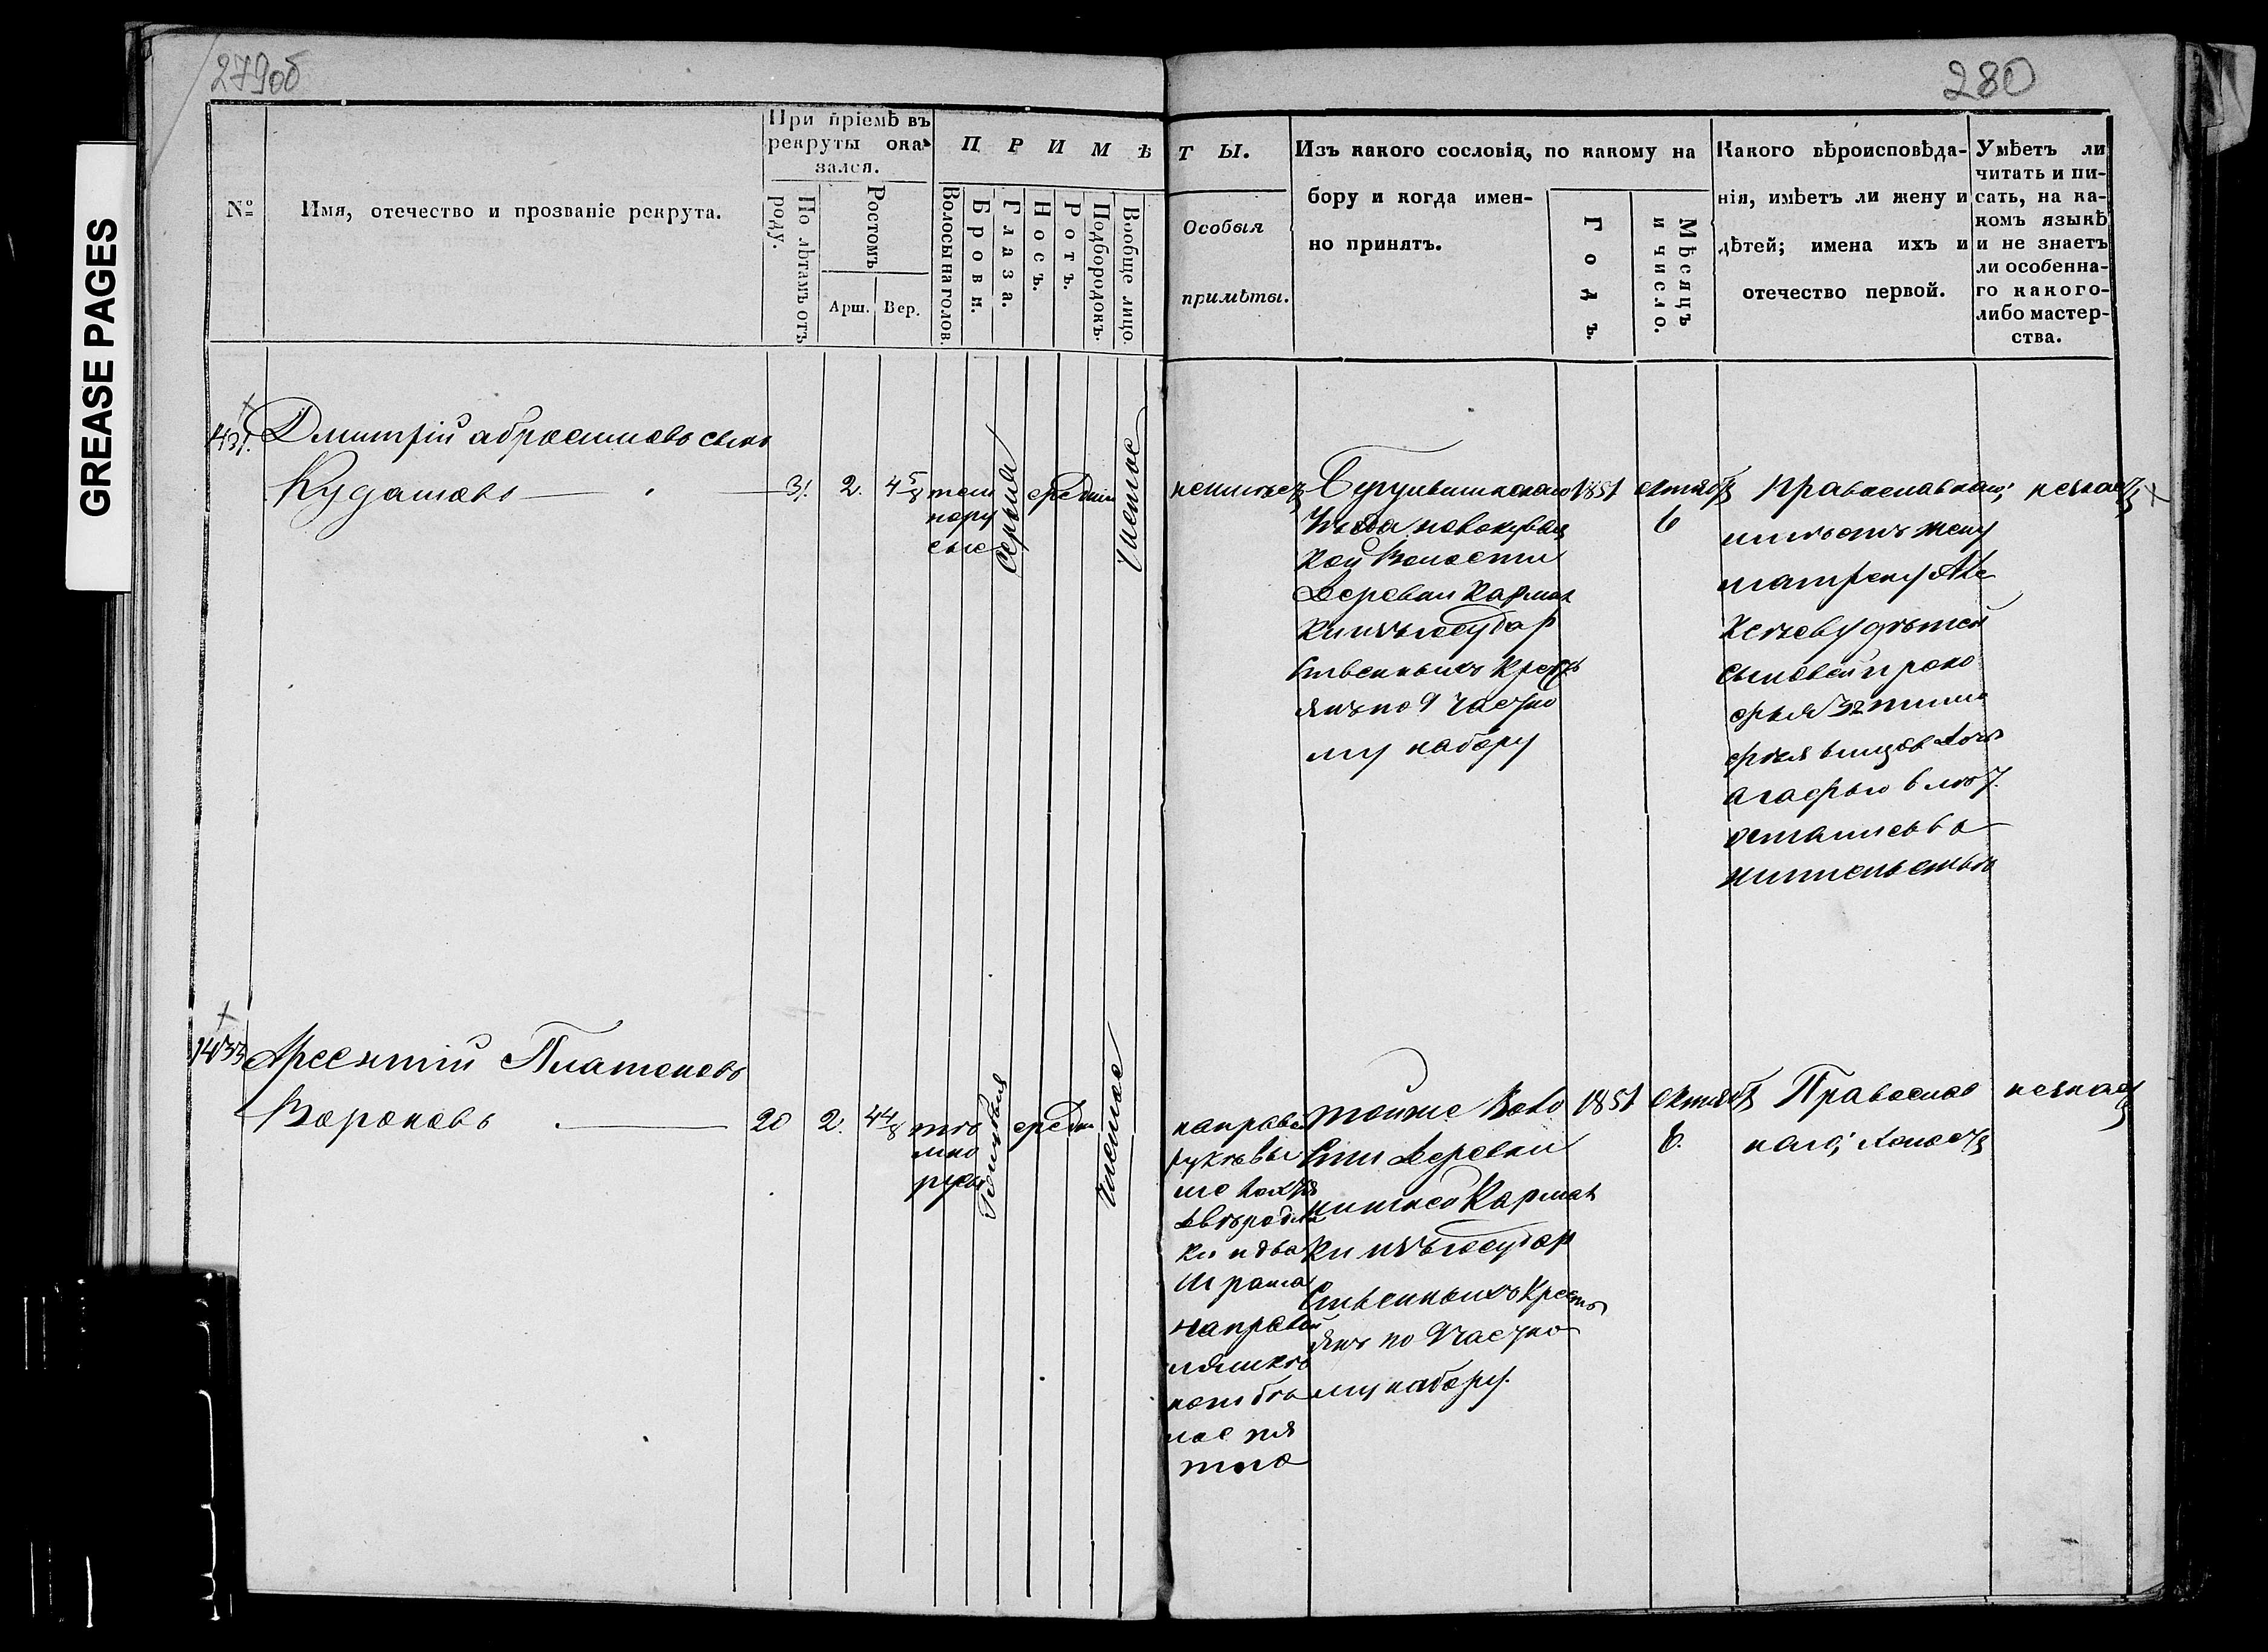 279об
280
GREASE PAGES
№
Имя, отечество и прозваніе рекрута.
При пріемѣ въ
рекруты ока-
зался.
По лѣтамъ отъ
роду.
Ростомъ
Арш.
Вер.
ПРИМѢ
Волосы на голов.
Брови.
Глаза.
Носъ.
Ротъ.
Подбородокъ.
Вообще лицо.
ТЫ.
Особыя
примѣты.
Изъ какого сословія, по какому на
бору и когда имен-
но принятъ.
Годъ.
Мѣсяцъ
и число.
Какого вѣроисповѣда-
нія, имѣетъ ли жену и
дѣтей; имена ихъ и
отечество первой.
Умѣетъ ли
читать и пи-
сать, на ка-
комъ языкѣ
и не знаетъ
ли особенна-
го какого-
либо мастер-
ства.
Дмитрій абросимовъ сынъ
Кудашовъ
31.
2.
4 5/8
темно
русые
серыя
средніи
чистое
неимеетъ
Уѣзда
кой Волости
Деревни Кармал
кинъ государ
ственныхъ кресть
янъ по 9 частно
му набору
1851
октября
6
православнаго;
имѣетъ жену
матрену Але
ксѣеву дѣтей
сыновей проко
фья
агафью 7.
жительствѣ
незнаетъ
1433
Арсентій Платоновъ
Вороновъ
20
2.
4 4/8
тѣ
мно
русы
Голубыя
средни
чистое
направой
рукѣ вы
ше локтя
двѣ родин
ки и два
шрама
направой
ляшкѣ
родимое пя
тно
тойже Воло
сти Деревни
Кармал
кинъ государ
ственныхъ кресть
янъ по 9 частно
му набору.
1851
октября
6.
Православ
наго; холостъ
незнаетъ